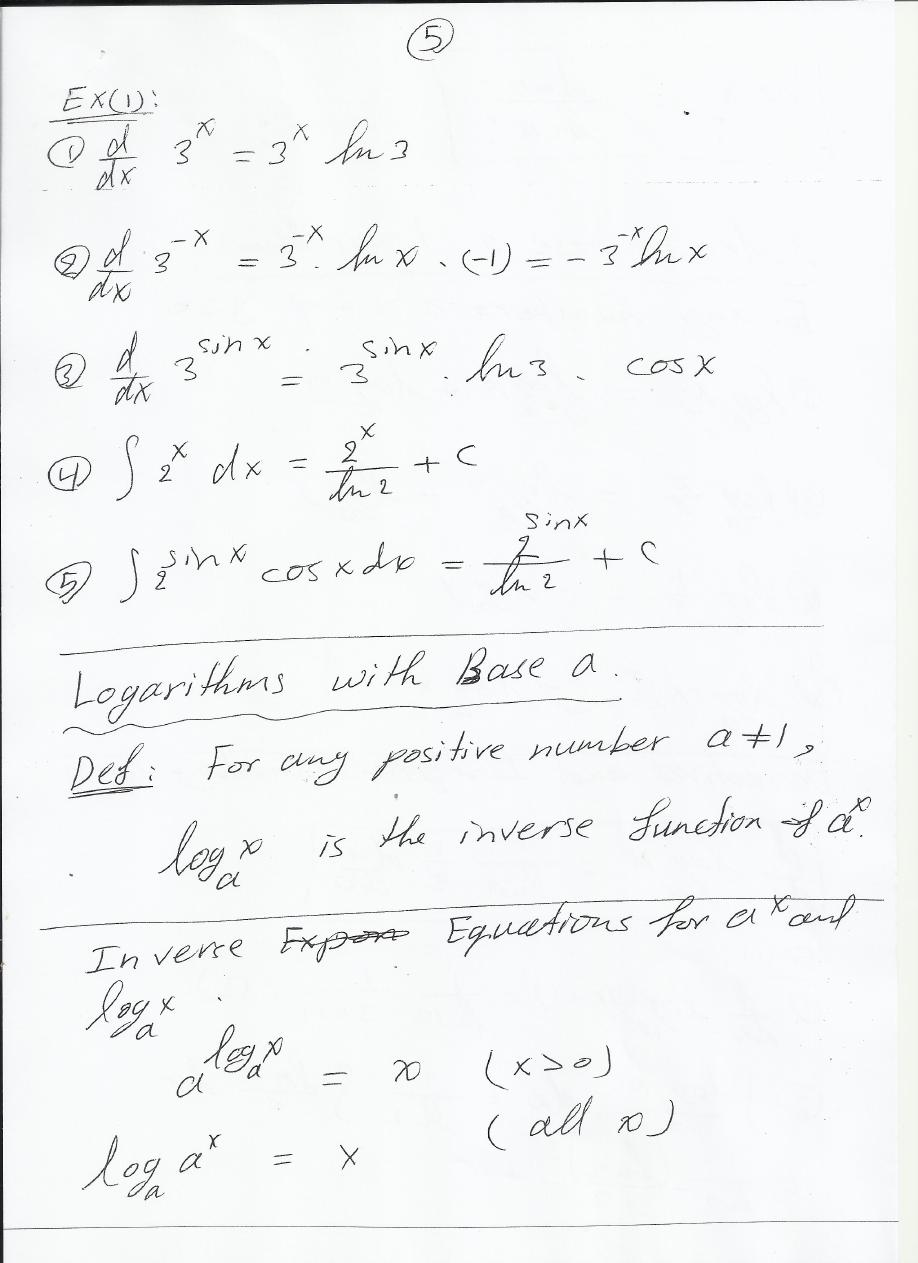 ⑤
Ex(1):
① d/dx 3^x = 3^x ln 3
② d/dx 3^-x = 3^-x · ln x · (-1) = - 3^-x ln x
③ d/dx 3^sin x = 3^sin x · ln 3 · cos x
④ ∫ 2^x dx = 2^x/ln 2 + C
⑤ ∫ 2^sin x cos x dx = 2^sin x/ln 2 + C
Logarithms with Base a.
Def: For any positive number a ≠ 1,
log_a x is the inverse function of a^x.
Inverse Expon Equations for a^x and
log_a x.
a^log_a x = x (x > 0)
log_a a^x = x (all x)